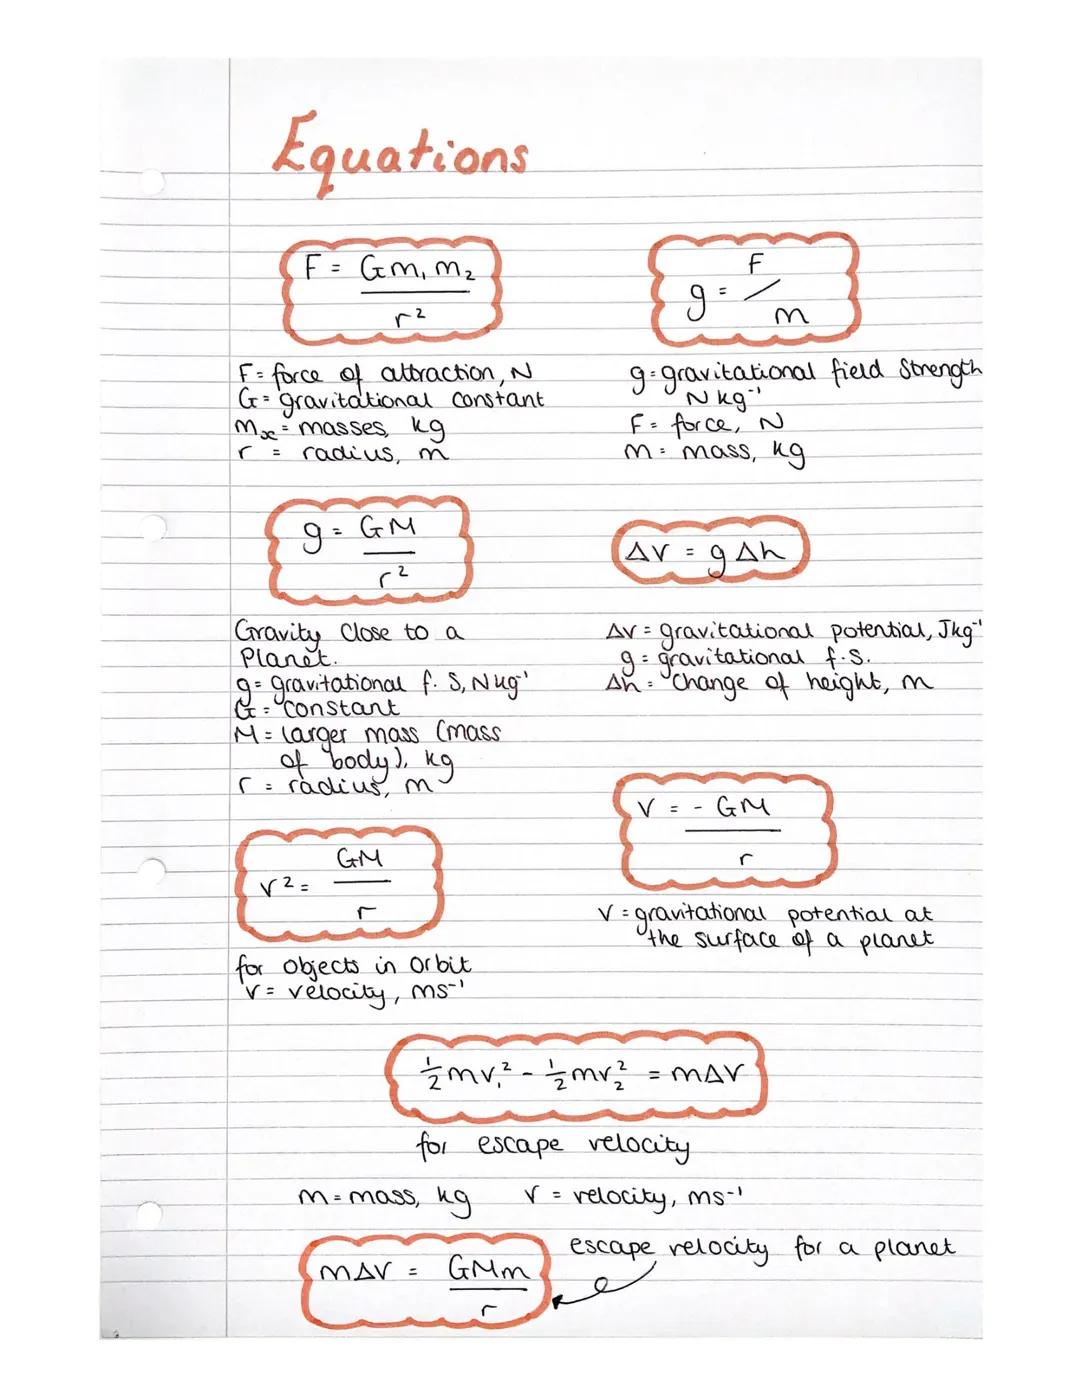 Equations
F = Gm₁ m₂
r²
F = force of attraction, N
G = gravitational constant
mₓ = masses, kg
r = radius, m
g = F
/
m
g = gravitational field Strength
N kg⁻¹
F = force, N
m = mass, kg
g = GM
r²
Gravity Close to a
Planet.
g = gravitational f. S, N kg⁻¹
G = Constant
M = larger mass (mass
of body), kg
r = radius, m
ΔV = g Δh
ΔV = gravitational potential, Jkg⁻¹
g = gravitational f.S.
Δh = Change of height, m
V² = GM
r
for objects in orbit
V = velocity, ms⁻¹
V = - GM
r
V = gravitational potential at
the surface of a planet
½mv₁² - ½mv₂² = mΔV
for escape velocity
m = mass, kg V = velocity, ms⁻¹
mΔV = GMm
r
escape velocity for a planet